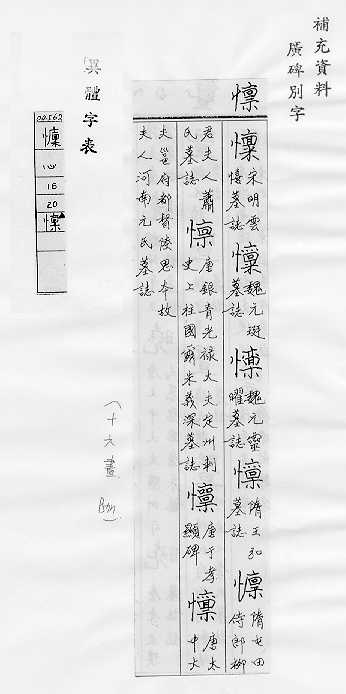 補充資料
廣碑別字
懍
懍 宋明雲憘墓誌 懍 魏元斑墓誌 懍 魏元靈曜墓誌 懍 隋王弘墓誌 懍 隋屯田侍郎柳
君夫人蕭氏墓誌 懍 唐銀青光祿大夫定州刺史上柱國爾朱義深墓誌 懍 唐于孝顯碑 懍 唐太中大
夫邕府都督陸思本故夫人河南元氏墓誌
異體字表
00562
懍
心
16
20
懍
(十六畫